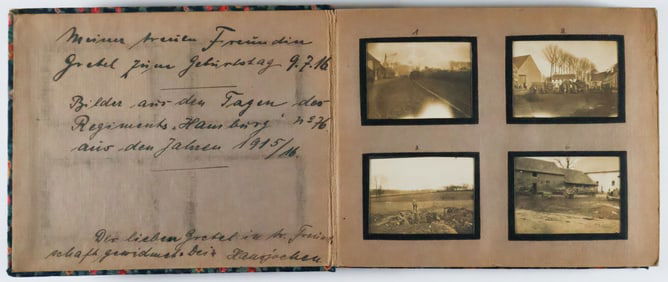 Meiner treuen Freundin
Gretel zum Geburtstag 9.7.16
Bilder aus den Tagen des
Regiments „Hamburg“ No 76
aus den Jahren 1915/16.
Der lieben Gretel in tr. Freund
schaft gewidmet. Dein Hansjochen
1
2
3